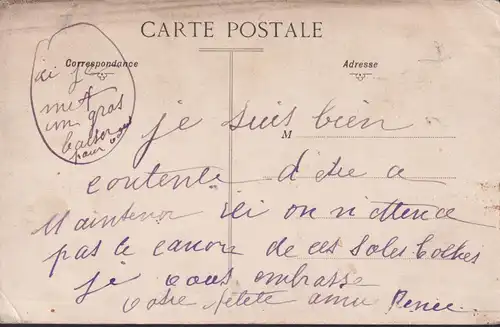 CARTE POSTALE
Correspondance
Adresse
ici je
met
un gros
baiser
pour vous
je suis bien
M
contente d'etre a
Maintenon ici on n'ttend
pas le canon de ces sales boches
je vous embrasse
votre petete amie Renee.